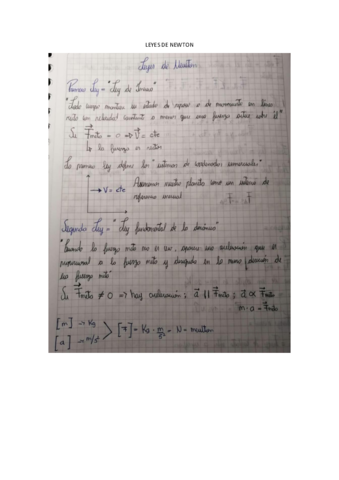 LEYES DE NEWTON
Leyes de Newton
Primera Ley = "Ley de Inercia"
"Todo cuerpo mantiene su estado de reposo o de movimiento en línea
recta con velocidad constante a menos que una fuerza actúe sobre él"
Si F⃗neta = 0 ⇒ V⃗ = cte
la fuerza
La primera Ley define los sistemas de
→ V = cte nuestro planeta como un sistema de
referencia inercial
Segunda Ley = "Ley fundamental de la dinámica"
"Cuando la fuerza neta no es cero, aparece una aceleración que es
proporcional a la fuerza neta y dirigida en la misma dirección de
la fuerza neta"
Si F⃗neta ≠ 0 ⇒ hay aceleración ; a⃗ || F⃗neta ; a⃗ ∝ F⃗neta
m · a = F⃗neta
[m] → Kg
[a] → m/s² > [F] = Kg · m/s² = N = newton